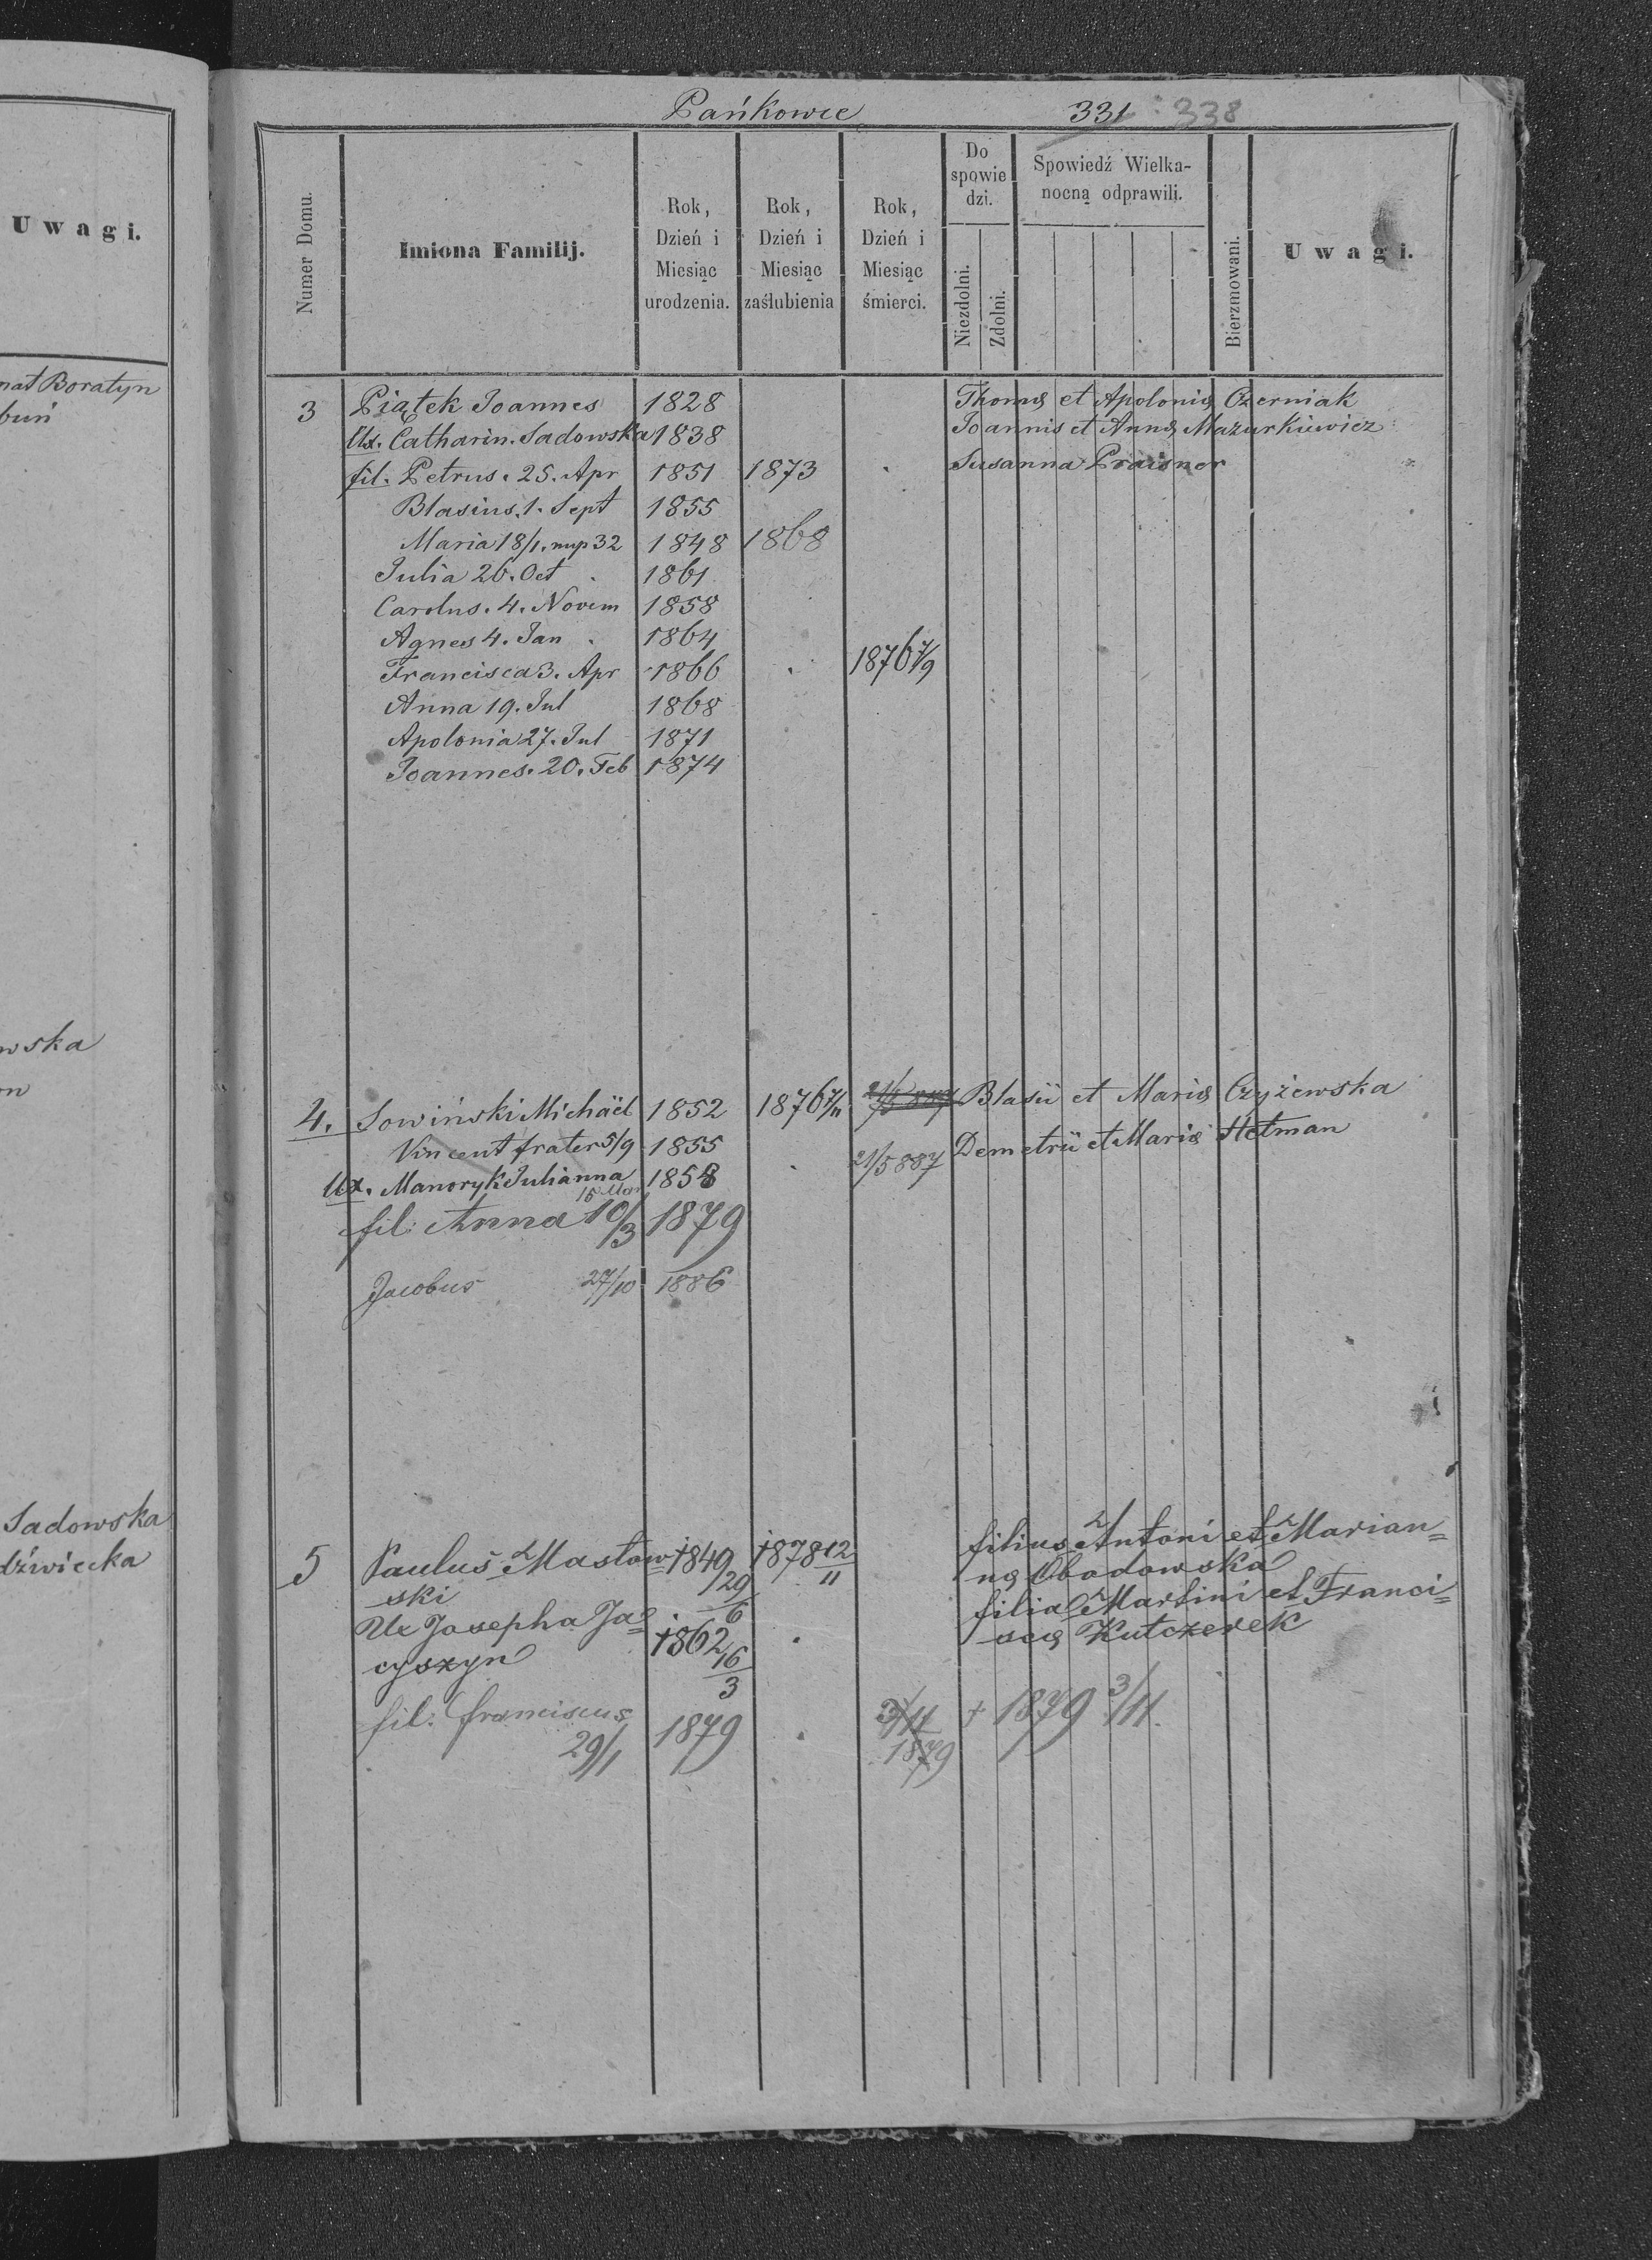 Uwagi.
nat Boratyn
buń
wska
Sadowska
dźwiecka
Pańkowce 331 338
Numer Domu.
Imiona Familij.
Rok, Dzień i Miesiąc urodzenia.
Rok, Dzień i Miesiąc zaślubienia
Rok, Dzień i Miesiąc śmierci.
Do spowie dzi.
Niezdolni.
Zdolni.
Spowiedź Wielka-
nocną odprawili.
Bierzmowani.
Uwagi.
3 Piątek Joannes 1828 Thomæ et Apoloniæ Czerniak
Ux. Catharin. Sadowska 1838 Joannis et Annæ Mazurkiewicz
fil. Petrus. 25. Apr 1851 1873 Susanna Praisner
Blasius. 1. Sept 1855
Maria 18/1. nup 32 1848 1868
Julia 26. Oct 1861
Carolus. 4. Novem 1858
Agnes 4. Jan 1864
Francisca 3. Apr 1866 1876 7/9
Anna 19. Jul 1868
Apolonia 27. Jul 1871
Joannes. 20. Feb 1874
4. Sowiński Michäel 1852 1876 7/11 21/5 887 Blasii et Mariæ Czyżewska
Vincent frater 5/9 1855 21/5 887 Demetrii et Mariæ Hetman
Ux. Manoryk Julianna 1858
fil: Anna 10/3 1879
Jacobus 27/10 1886
5 Paulus Masłow= 1849 1878 12/11 filius Antoni et Marian=
ski 29/6 næ Obadowska
Ux Josepha Ja= 1862 filia Martini et Franci=
cyszyn 16/3 scæ Kutczerek
fil. franciscus 1879 3/11 + 1879 3/11.
29/1 1879